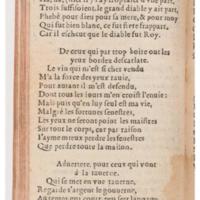 Trois suffisoient, le grand diable y ait part,
Phebé pour dieu pour sa mere, & pour moy
Qui fut bien blanc, ce fut fiere frappart,
Car il n'escheut que le diable fut Roy.
De ceux qui par trop boire ont les
yeux bordez d'escarlate.
Le vin qui m'est si cher vendu
M'a la force des yeux rauie,
Pour autant il m'est defendu,
Dont tous les iours m'en croist l'enuie:
Mais puis qu'en luy seul est ma vie,
Malgré les fortunes senestres,
Les yeux ne seront point les maistres
Sur tout le corps, car par raison
I'ayme mieux perdre les fenestres
Que perdre toute la maison.
Aduertere, pour ceux qui vont
à la tauerne.
Qui se met en vne tauerne,
Regarde s'argent le gouuerne,